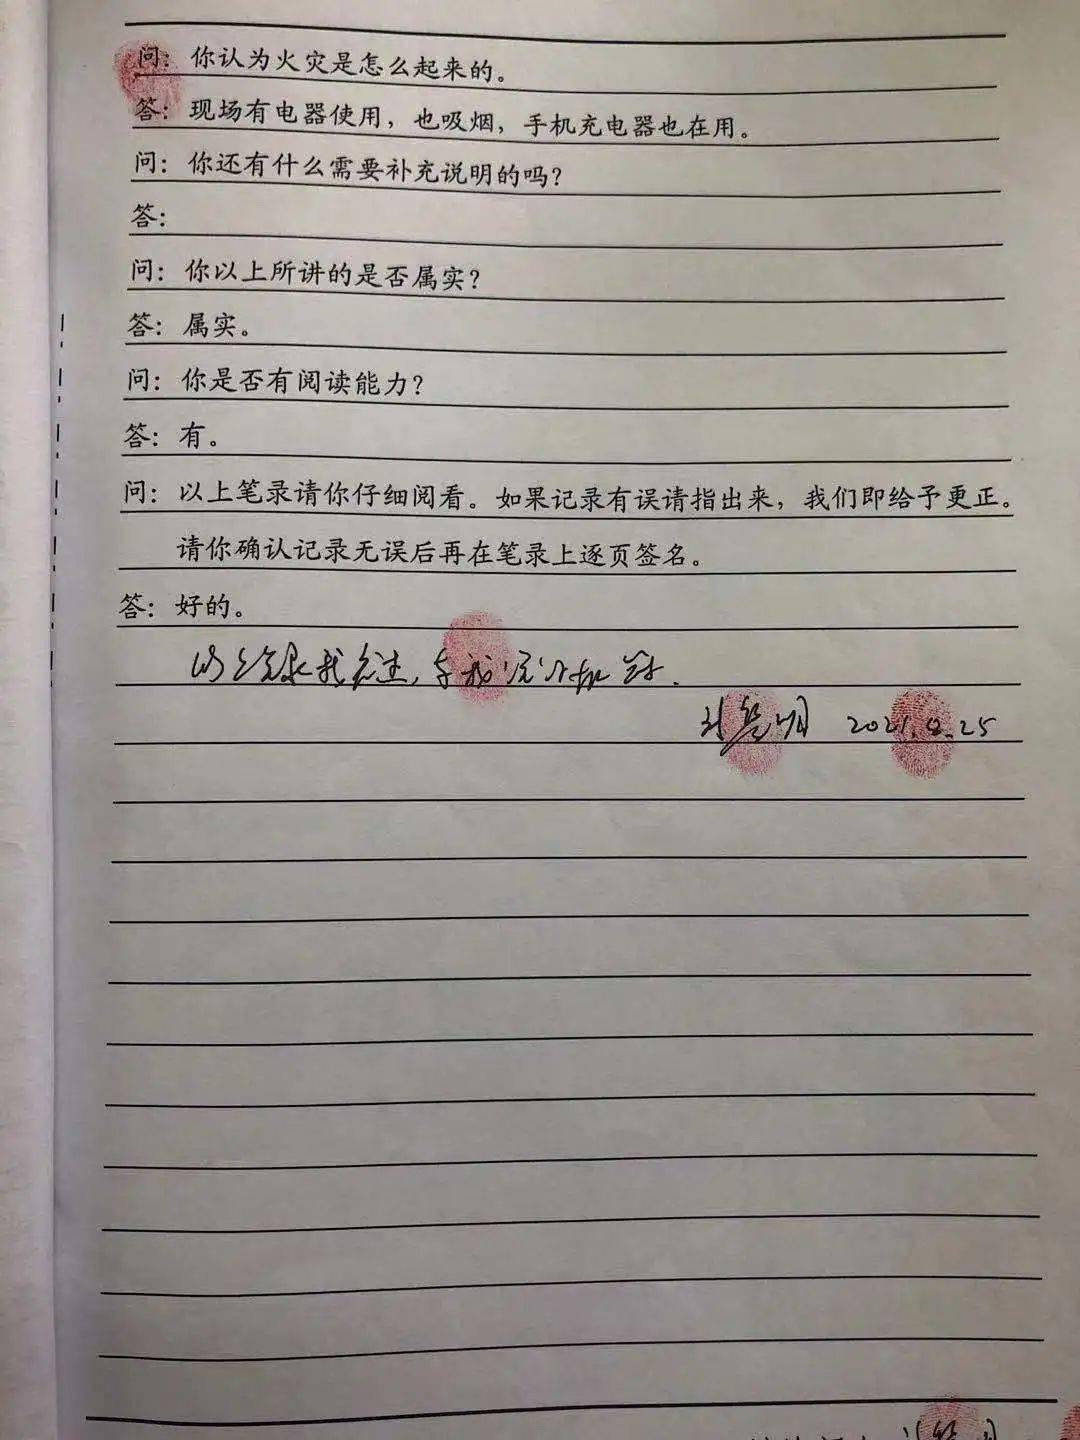 问：你认为火灾是怎么起来的。
答：现场有电器使用，也吸烟，手机充电器也在用。
问：你还有什么需要补充说明的吗？
答：
问：你以上所讲的是否属实？
答：属实。
问：你是否有阅读能力？
答：有。
问：以上笔录请你仔细阅看。如果记录有误请指出来，我们即给予更正。
请你确认记录无误后再在笔录上逐页签名。
答：好的。
以上笔录我看过，与我说的相符。
2021.8.25